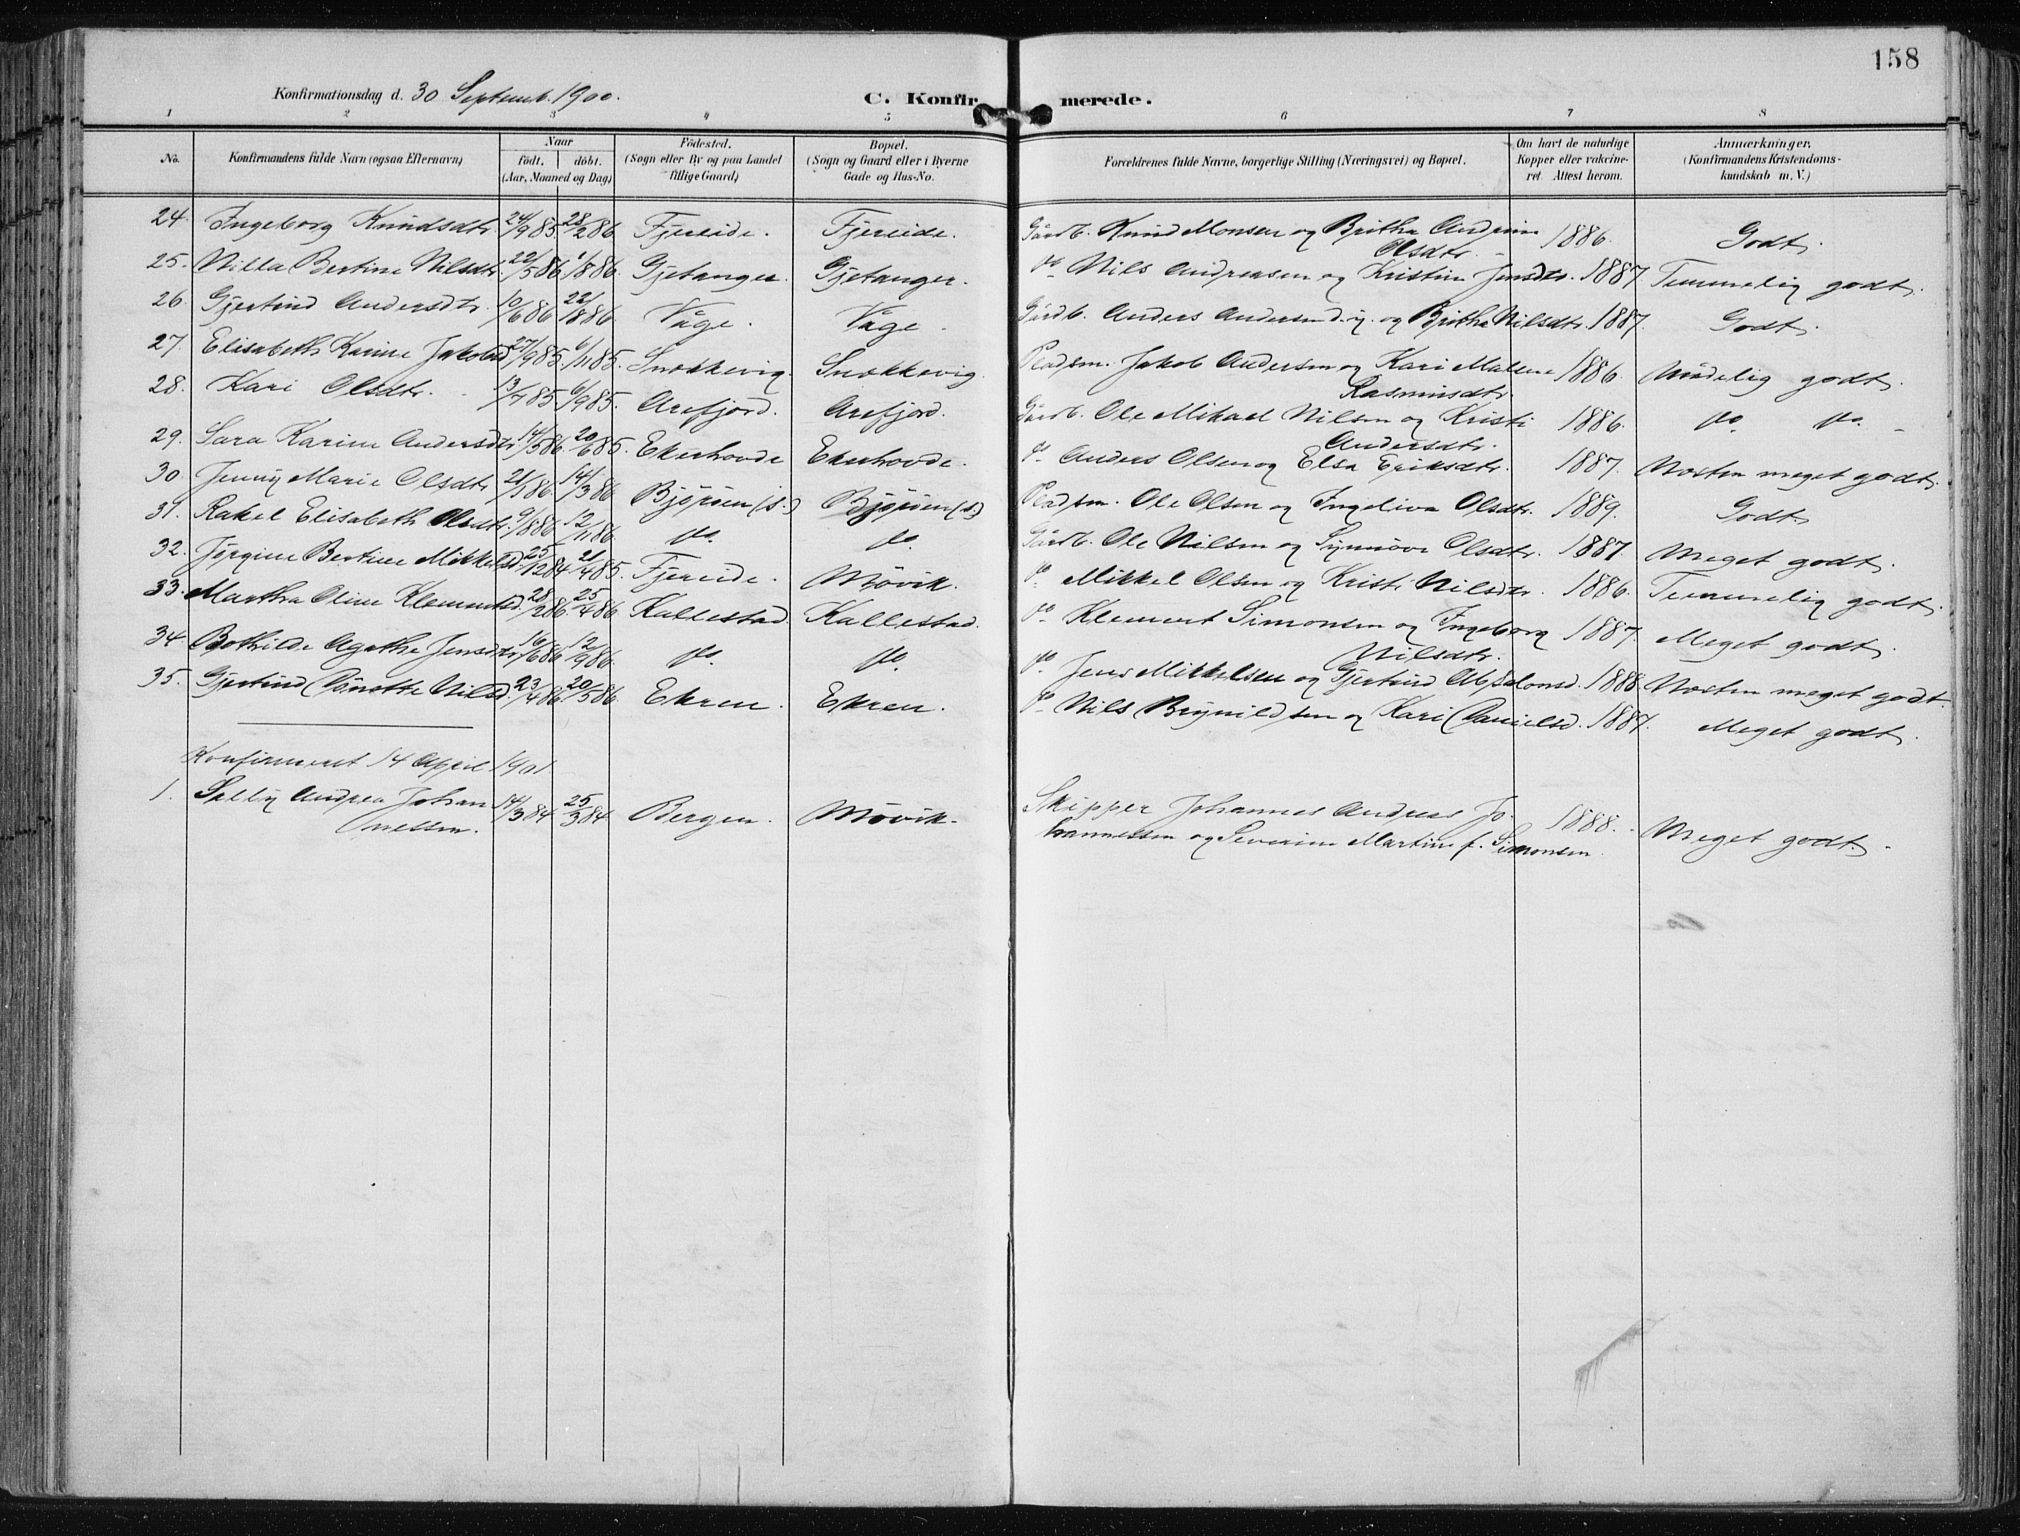 158
Konfirmationsdag d. 30 Septemb. 1900.
C. Konfirmerede.
1 2 3 4 5 6 7 8
No. Konfirmandens fulde Navn (ogsaa Efternavn) Naar født, døbt. (Aar, Maaned og Dag) Fødested. (Sogn eller By og paa Landet tillige Gaard) Bopæl. (Sogn og Gaard eller i Byerne Gade og Hus-No. Forældrenes fulde Navne, borgerlige Stilling (Næringsvei) og Bopæl. Om havt de naturlige Kopper eller vakcineret. Attest herom. Anmærkninger. (Konfirmandens Kristendomskundskab m. V.)
24. Ingeborg Knudsdtr. 24/9 85 28/2 86 Fjereide. Fjereide. Gårdb. Knud Monsen og Britha Andrine Olsdtr. 1886. Godt.
25. Nilla Bertine Nilsdtr. 22/5 86 1/8 86. Gjetanger. Gjetanger. do Nils Andreasen og Kristine Jensdtr. 1887. Temmelig godt.
26. Gjertrud Andersdtr. 10/6 86 22/8 86 Våge. Våge. Gårdb. Anders Andersen d. y. og Britha Nilsdtr. 1887. Godt.
27. Elisabeth Karine Jakobsd. 27/9 85. 6/11 85. Snekkevig. Snekkevig. Pladsm. Jakob Andersen og Kari Malene Rasmusdtr. 1886. Mådelig godt.
28. Kari Olsdtr. 13/7 85 6/9 85. Arefjord. Arefjord. Gårdb. Ole Mikael Nilsen og Kristi Andersdtr. 1886. do. do.
29. Sara Karine Andersdtr. 14/5 86 20/6 85. Ekerhovde Ekerhovde. do. Anders Olsen og Elsa Eriksdtr. 1887. Næsten meget godt.
30. Jenny Marie Olsdtr. 21/1 86. 14/3 86 Bjørøen (s.) Bjørøen (s.) Pladsm. Ole Olsen og Ingeliva Olsdtr. 1889. Godt
31. Rakel Elisabeth Olsdtr. 9/8 86 12/11 86 do. do. Gårdb. Ole Nilsen og Synnøve Olsdtr. 1887. Meget godt.
32. Jørgine Bertine Mikkelsd. 25/12 84 21/4 85. Fjereide. Møvik. do. Mikkel Olsen og Kristi Nilsdtr. 1886. Temmelig godt.
33. Martha Oline Klementsd. 28/2 86 25/4 86. Kallestad. Kallestad. do. Klement Simonsen og Ingeborg Nilsdtr. 1887. Meget godt.
34. Bothilde Agathe Jensdtr. 16/6 86 12/9 86. do. do. do. Jens Mikkelsen og Gjertrud Absalonsd. 1888. Næsten meget godt.
35. Gjertrud Dønette Nilsd. 23/4 86 20/5 86. Ekren. Ekren. do Nils Brynildsen og Kari Danielsd. 1887. Meget godt.
Konfirmeret 14 April 1901
1. Selly Andrea Johannessen. 14/3 84 25/3 84. Bergen. Møvik. Skipper Johannes Andreas Johannessen og Severine Martine f. Simonsen. 1888. Meget godt.